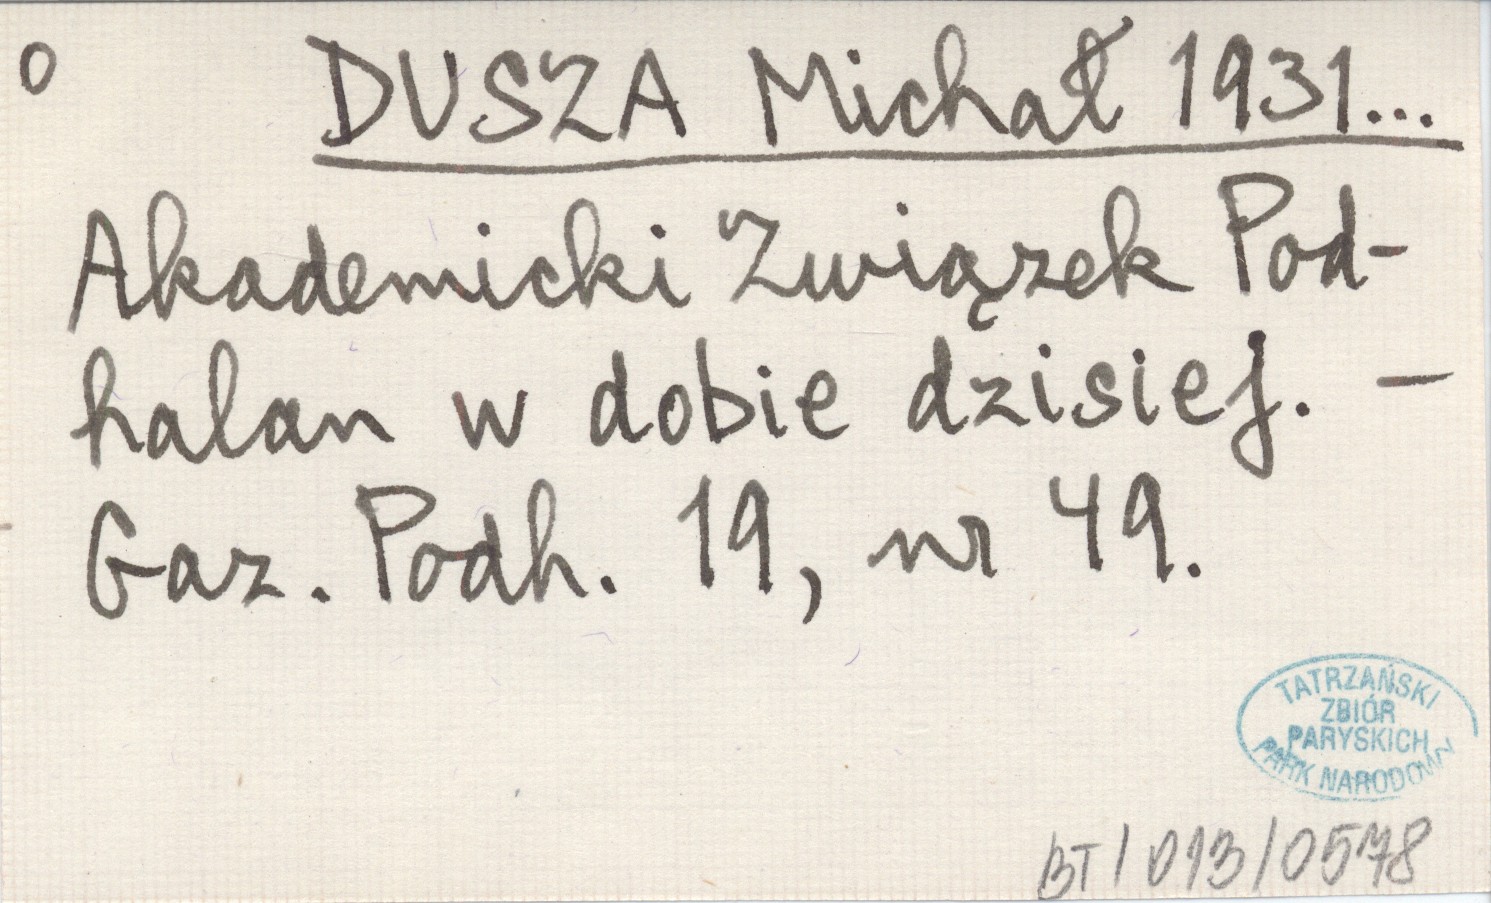 o DUSZA Michał 1931...
Akademicki Związek Pod-
halan w dobie dzisiej. –
Gaz. Podh. 19, nr 49.
TATRZAŃSKI
ZBIÓR
PARYSKICH
PARK NARODOWY
BT/013/0578